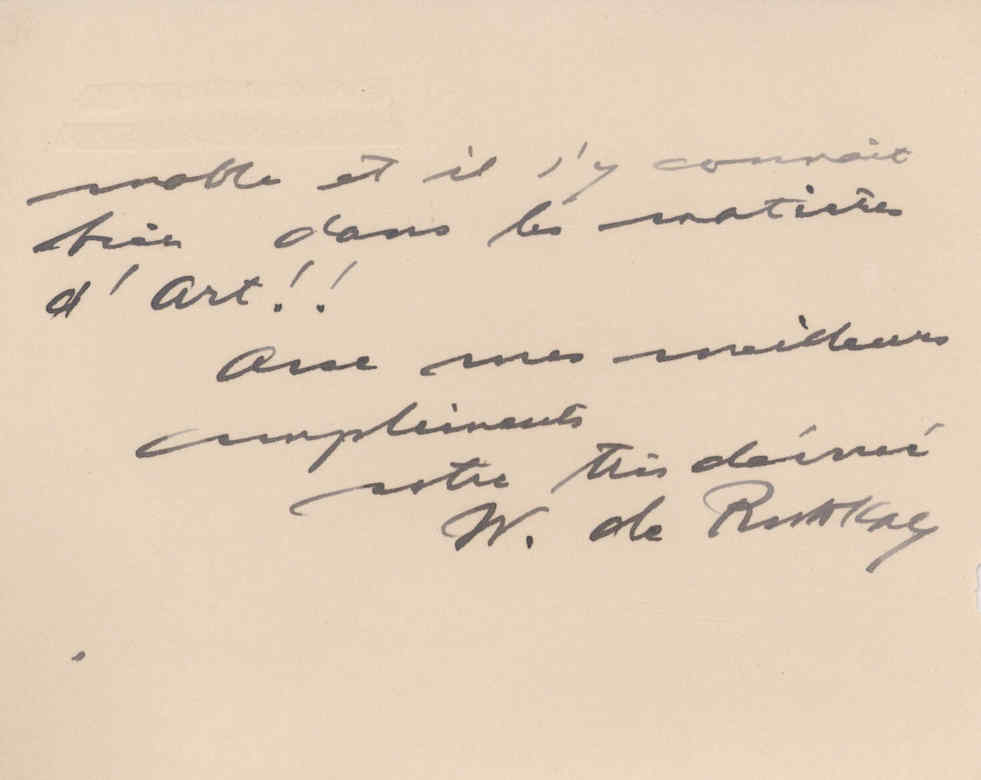 noble et il s'y connait
bien dans les matières
d'Art!!
Avec mes meilleurs
compliments
votre très dévoué
W. de